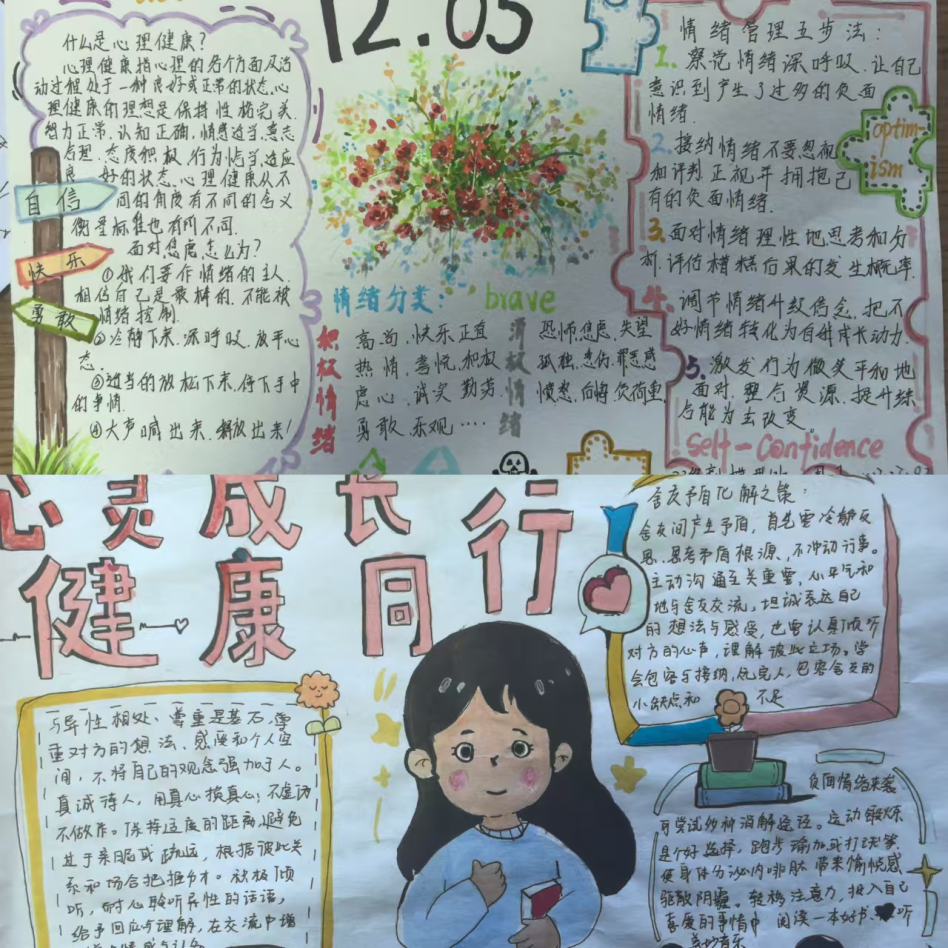 12.05
什么是心理健康？
心理健康指心理的各个方面及活
动过程处于一种良好或正常的状态.心
理健康的理想是保持性格完美.
智力正常.认知正确,情感适当.意志
合理.态度积极.行为恰当.适应
良好的状态.心理健康从不
同的角度有不同的含义
衡量标准也有所不同.
面对焦虑怎么办?
①我们要作情绪的主人.
相信自己是最棒的.不能被
情绪控制.
②冷静下来.深呼吸.放平心
态.
③适当的放松下来.停下手中
的事情.
④大声喊出来.释放出来!
自信
快乐
勇敢
情绪分类:
brave
积极情绪
高尚.快乐.正直
热情.喜悦.积极
虚心.诚实.勤劳
勇敢.乐观....
消极情绪
恐怖.焦虑.失望
孤独.悲伤.罪恶感
愤怒.自卑.负荷重.
情绪管理五步法:
1.察觉情绪深呼吸.让自己
意识到产生了过多的负面
情绪.
2.接纳情绪不要忽视
和评判.正视并拥抱已
有的负面情绪.
optim-
ism
3.面对情绪理性地思考和分
析.评估糟糕后果的发生概率.
4.调节情绪升级信念.把不
好情绪转化为自身成长动力.
5.激发行为微笑平和地
面对.整合资源.提升综
合能力去改变.
Self-Confidence
心灵成长
健康同行
舍友矛盾化解之策：
舍友间产生矛盾，首先要冷静反
思、思考矛盾根源、不冲动行事。
主动沟通至关重要，心平气和
地与舍友交流，坦诚表达自己
的想法与感受，也要认真倾听
对方的心声，理解彼此立场。学
会包容与接纳，无完人，包容舍友的
小缺点和不足
与异性相处、尊重是基石，尊
重对方的想法、感受和个人空
间，不将自己的观念强加于人。
真诚待人，用真心换真心；不虚伪
不做作。保持适度的距离，避免
过于亲昵或疏远，根据彼此关
系和场合把握分寸。积极倾
听，耐心聆听异性的话语，
给予回应与理解，在交流中增
负面情绪来袭
可尝试多种消解途径。运动锻炼
是个好选择，跑步瑜伽或打球等.
使身体分泌内啡肽 带来愉悦感
驱散阴霾。转移注意力，投入自己
喜爱的事情中 阅读一本好书、听